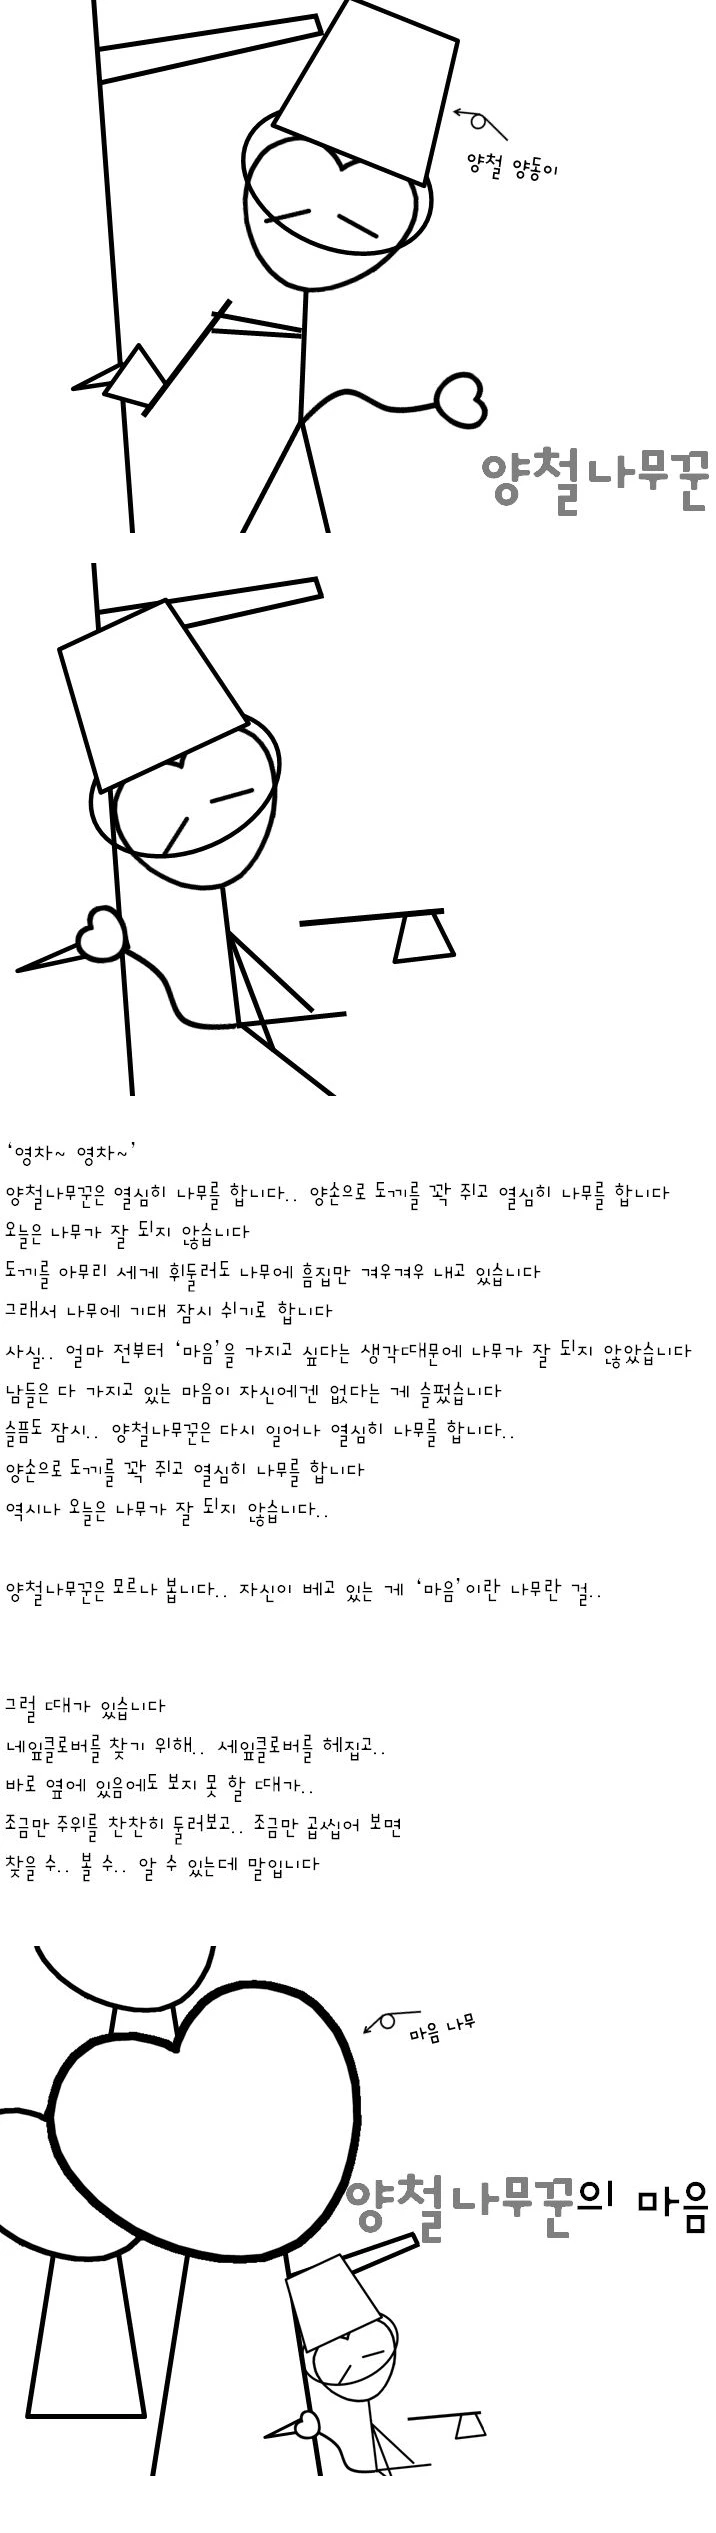 양철 양동이
양철나무꾼
‘영차~ 영차~’
양철나무꾼은 열심히 나무를 합니다.. 양손으로 도끼를 꽉 쥐고 열심히 나무를 합니다
오늘은 나무가 잘 되지 않습니다
도끼를 아무리 세게 휘둘러도 나무에 흠집만 겨우겨우 내고 있습니다
그래서 나무에 기대 잠시 쉬기로 합니다
사실.. 얼마 전부터 ‘마음’을 가지고 싶다는 생각때문에 나무가 잘 되지 않았습니다
남들은 다 가지고 있는 마음이 자신에겐 없다는 게 슬펐습니다
슬픔도 잠시.. 양철나무꾼은 다시 일어나 열심히 나무를 합니다..
양손으로 도끼를 꽉 쥐고 열심히 나무를 합니다
역시나 오늘은 나무가 잘 되지 않습니다..
양철나무꾼은 모르나 봅니다.. 자신이 베고 있는 게 ‘마음’이란 나무란 걸..
그럴 때가 있습니다
네잎클로버를 찾기 위해.. 세잎클로버를 헤집고..
바로 옆에 있음에도 보지 못 할 때가..
조금만 주위를 찬찬히 둘러보고.. 조금만 곱씹어 보면
찾을 수.. 볼 수.. 알 수 있는데 말입니다
마음 나무
양철나무꾼의 마음